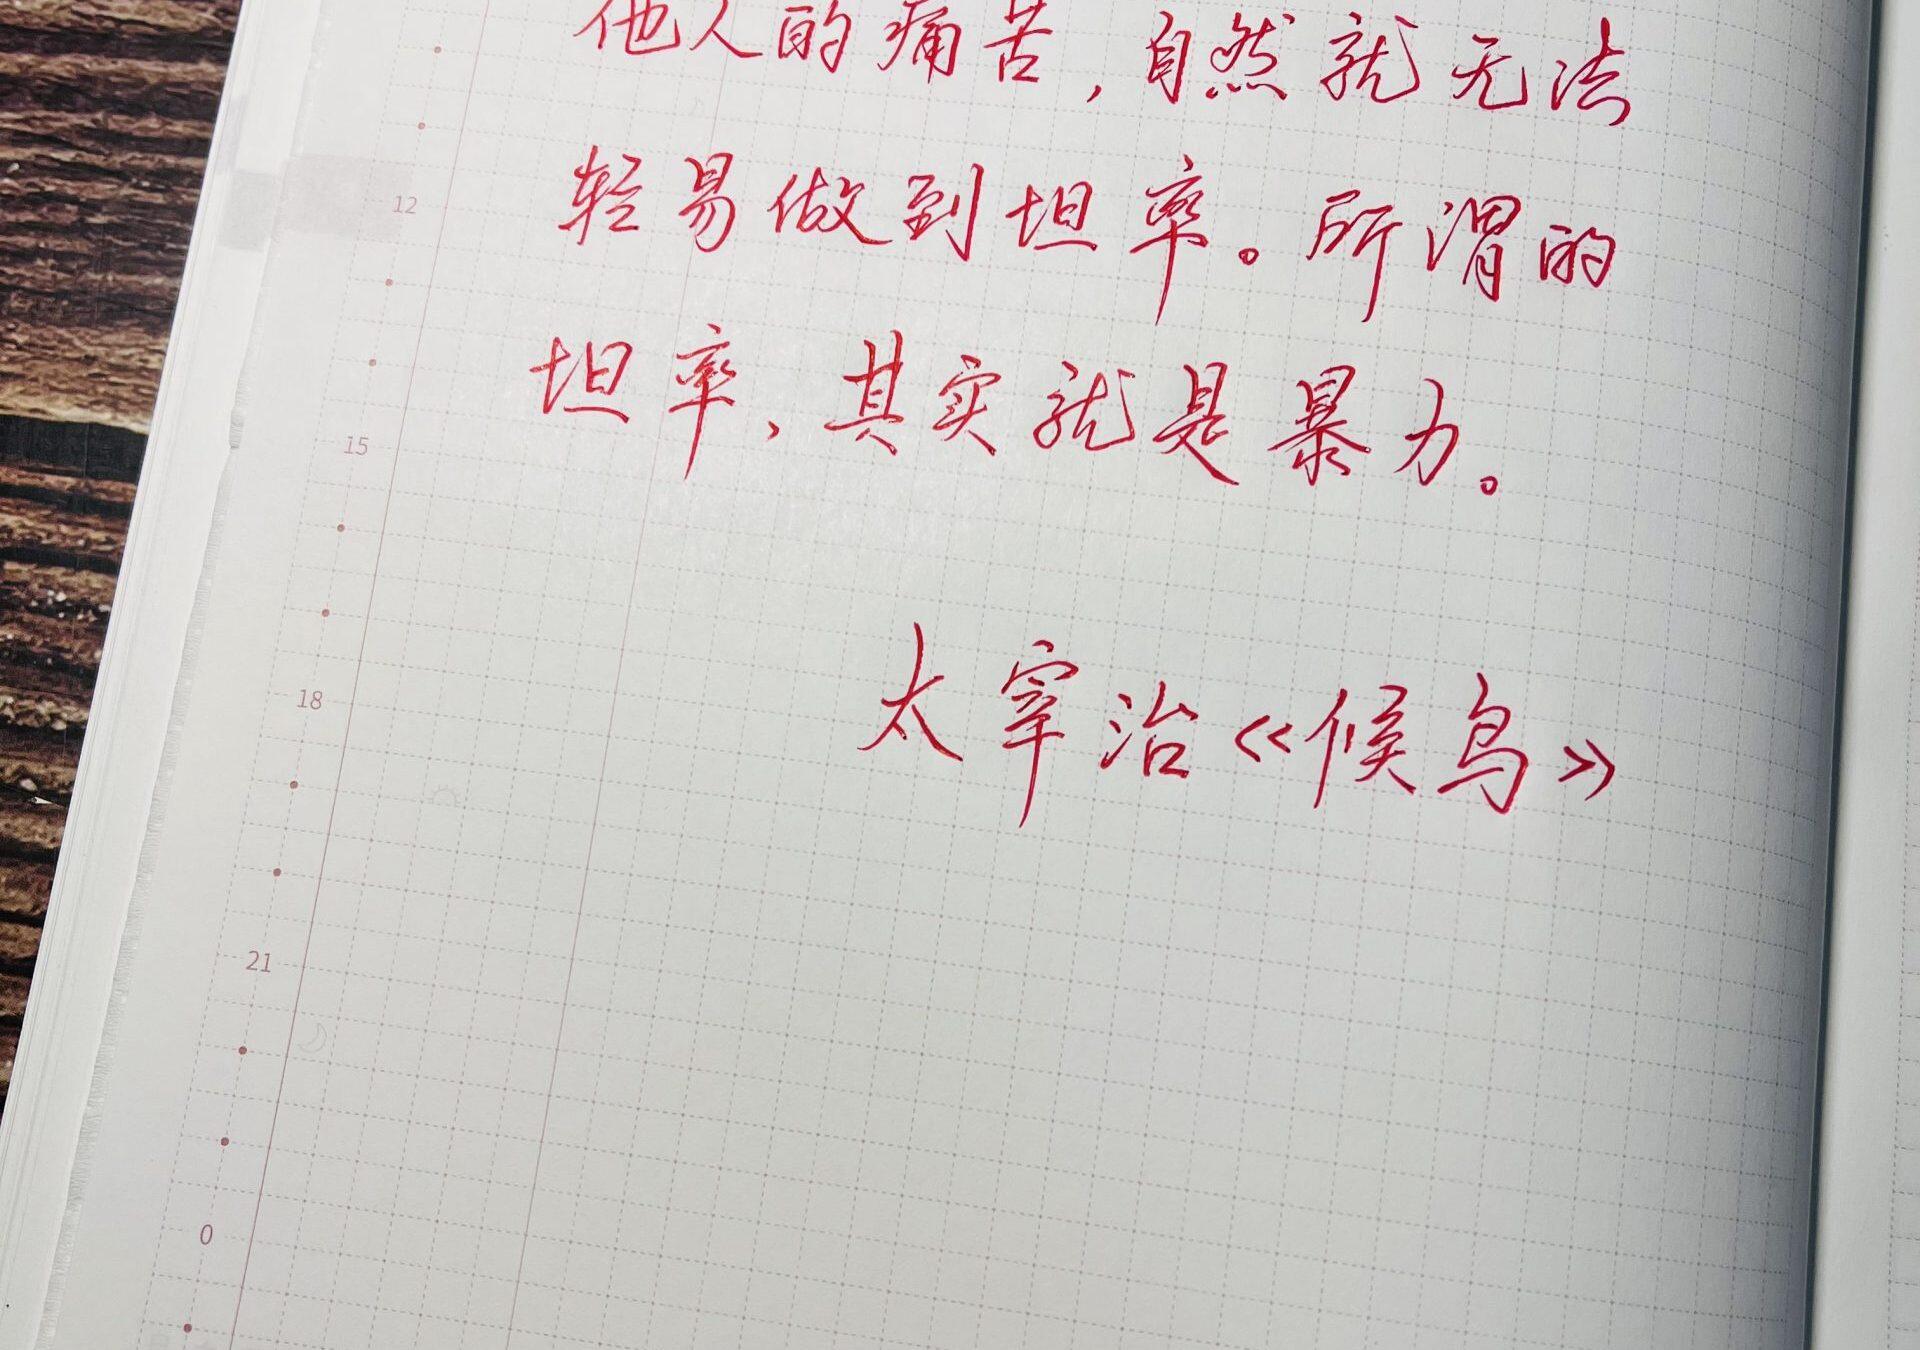 他人的痛苦，自然就无法
轻易做到坦率。所谓的
坦率，其实就是暴力。
太宰治《候鸟》
12
15
18
21
0